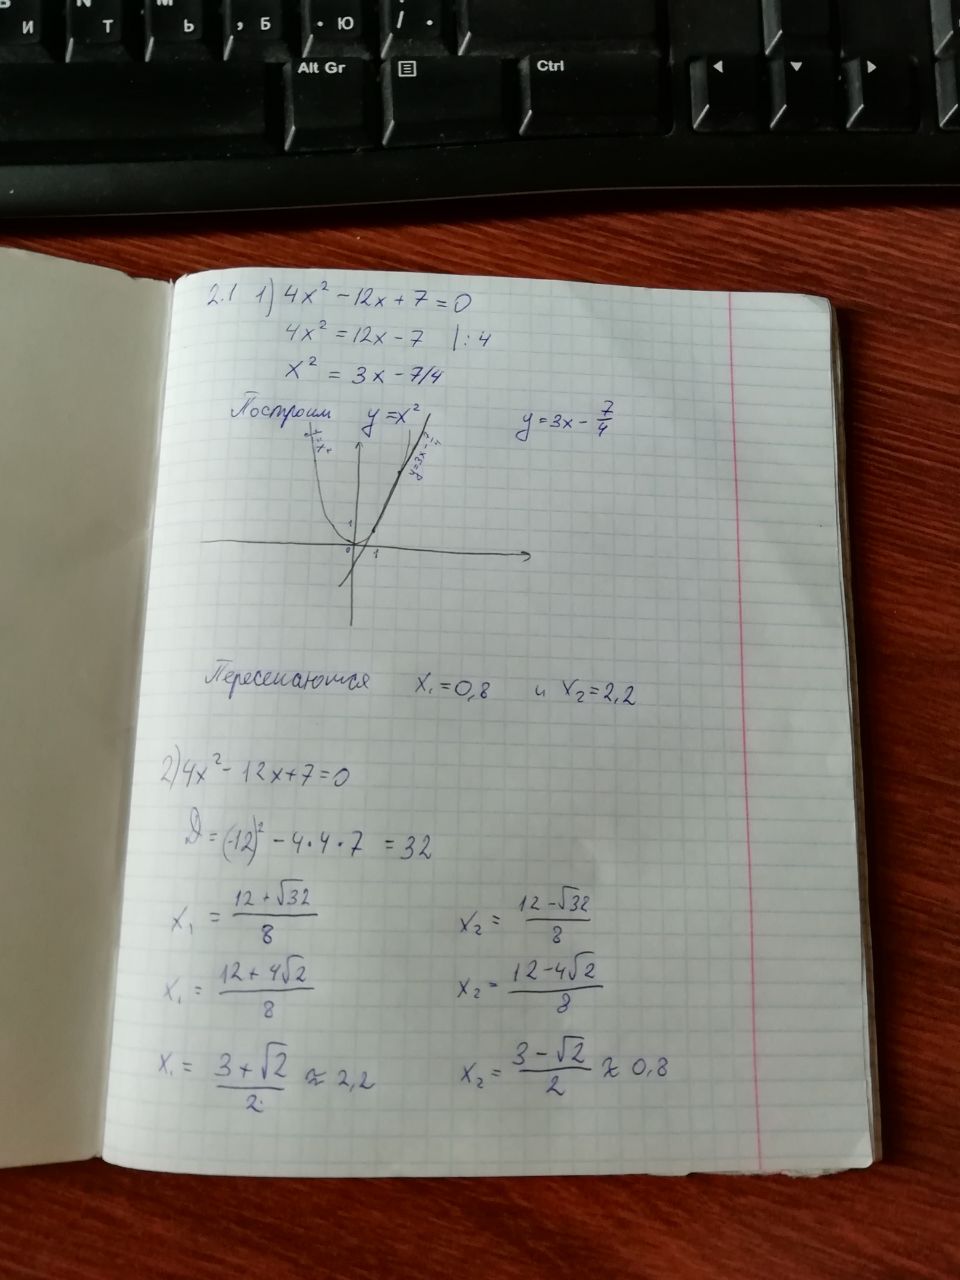 И Т Ь , Б . Ю / .
Alt Gr Ctrl
2.1 1) 4x² - 12x + 7 = 0
4x² = 12x - 7 | : 4
x² = 3x - 7/4
Построим y = x² y = 3x - 7/4
y = x² y = 3x - 7/4
1
0 1
Пересекаются x₁ = 0,8 и x₂ = 2,2
2) 4x² - 12x + 7 = 0
D = (-12)² - 4 · 4 · 7 = 32
x₁ = (12 + √32)/8 x₂ = (12 - √32)/8
x₁ = (12 + 4√2)/8 x₂ = (12 - 4√2)/8
x₁ = (3 + √2)/2 ≈ 2,2 x₂ = (3 - √2)/2 ≈ 0,8